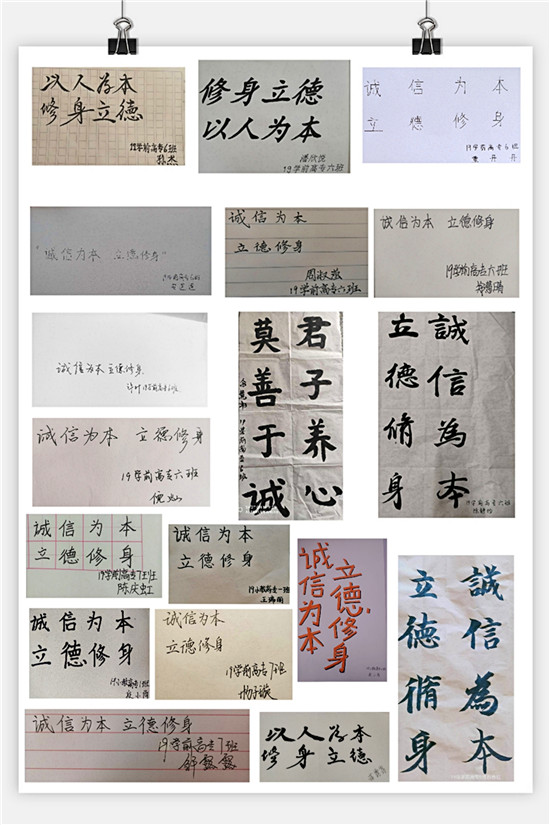 以人为本
修身立德
19学前高专6班
孙杰
修身立德
以人为本
潘欣悦
19学前高专六班
诚信为本
立德修身
19学前高专6班
丹丹
"诚信为本 立德修身"
19学前高专6班
诚信为本
立德修身
周淑敏
19学前高专六班
诚信为本 立德修身
19学前高专六班
诚信为本 立德修身
诚信为本 立德修身
19学前高专六班
倪灿
君子养心
莫善于诚
誠信為本
立德脩身
19学前高专六班
诚信为本
立德修身
19学前高专7班
陈庆虹
诚信为本
立德修身
19小教高专一班
王瑞雨
立德修身
诚信为本
诚信为本
立德修身
诚信为本
立德修身
19学前高专7班
杨子璇
誠信為本
立德脩身
诚信为本 立德修身
19学前高专7班
舒懿懿
以人为本
修身立德